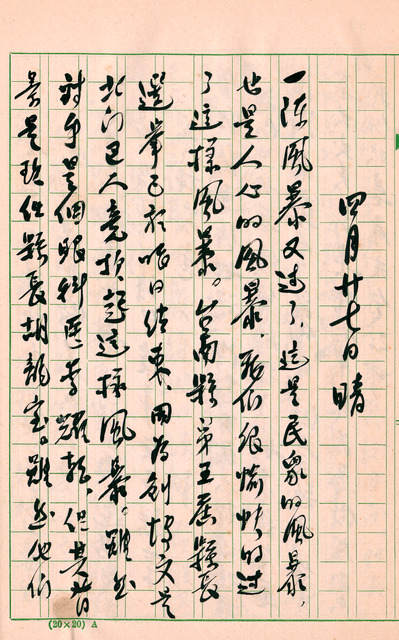 四月廿七日 晴
一陣風暴又過了,這是民眾的風暴,
也是人心的風暴,我們很愉快的過
了這樣風暴。台南縣第五屆縣長
選舉已於昨日結束,因為劉博文是
北门区人竟掀起這樣風暴。雖然
對手是個眼科医李耀乾,但其背
景是現任縣長胡龍宝。雖然他們
(20×20) A